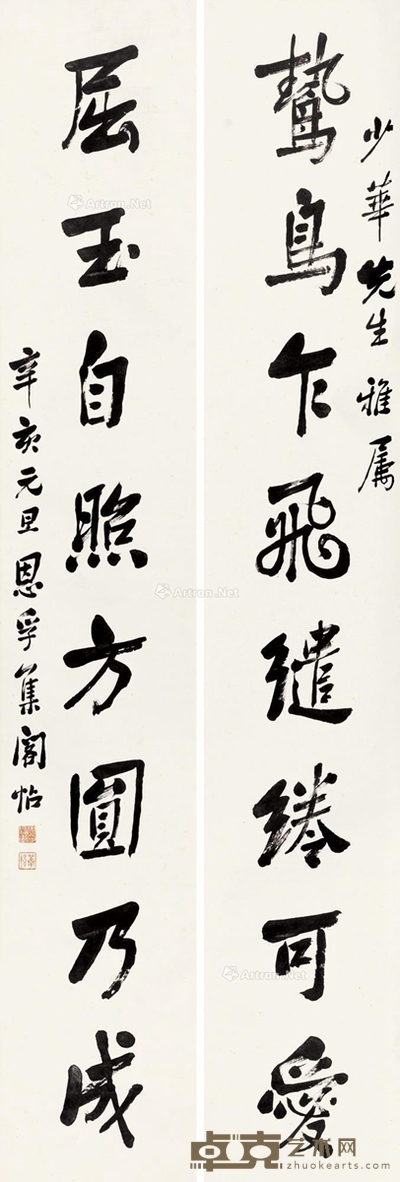 少華先生雅属
鷙鳥乍飛繾綣可愛
屈玉自照方圓乃成
辛亥元旦恩孚集閣帖
Artron.Net
Artron.Net
Artron.Net
Artron.Net
Artron.Net
Artron.Net
卓克艺术网
zhuokearts.com